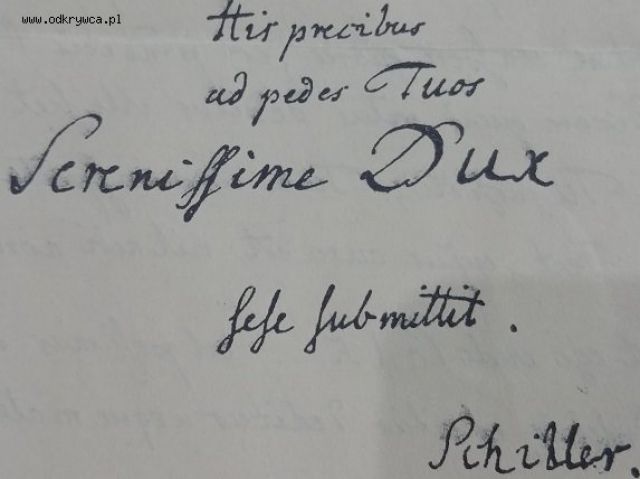 www.odkrywca.pl
His precibus
ad pedes Tuos
Serenissime Dux
sese submittit.
Schiller.